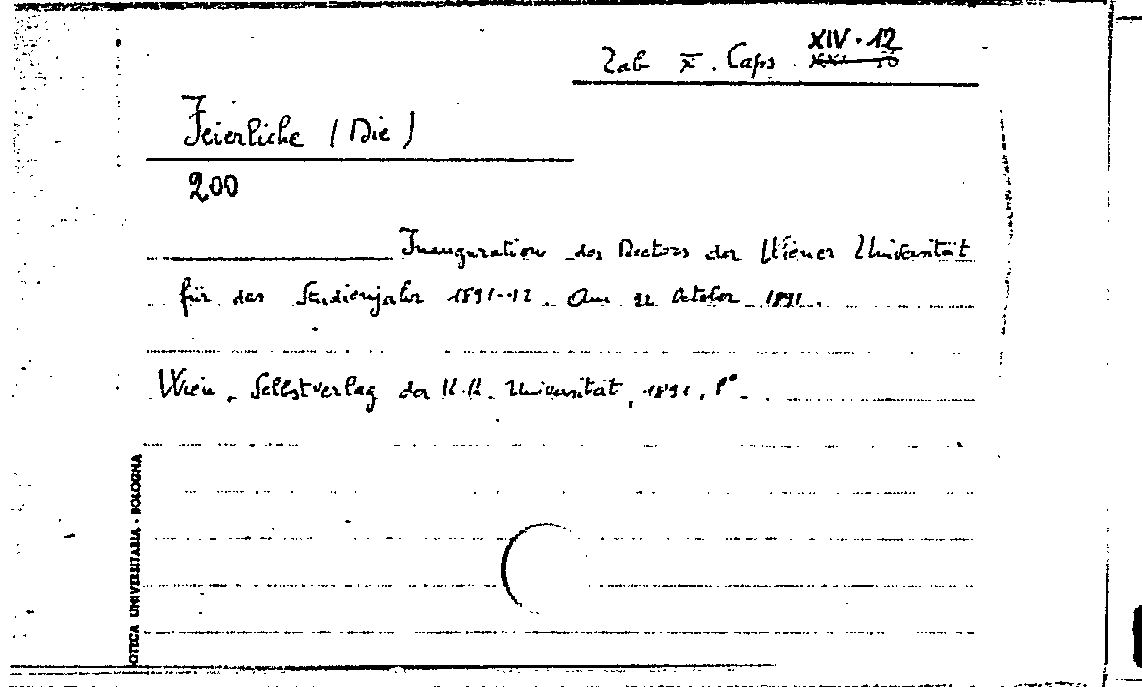 Tab x. Caps XIV. 12
Feierliche (Die)
200
Inauguration des Rectors der Wiener Universität
für das Studienjahr 1891-92. Am 22 October 1891.
Wien. Selbstverlag der K.K. Universität, 1891, 8°.
OTECA UNIVERSITARIA - BOLOGNA